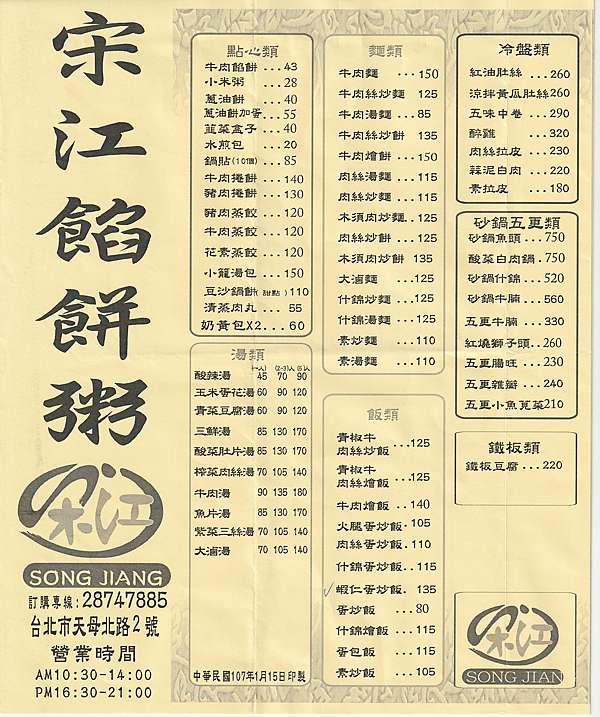 宋江餡餅粥
宋江
SONG JIANG
訂購專線:28747885
台北市天母北路2號
營業時間
AM10:30-14:00
PM16:30-21:00
點心類
牛肉餡餅...43
小米粥...28
蔥油餅...40
蔥油餅加蛋...55
韮菜盒子...40
水煎包...20
鍋貼(10個)...85
牛肉捲餅...140
豬肉捲餅...130
豬肉蒸餃...120
牛肉蒸餃...120
花素蒸餃...120
小籠湯包...150
豆沙鍋餅(甜點)110
清蒸肉丸...55
奶黃包X2...60
湯類
(一人) (2-3)人 (5)人
酸辣湯 45 70 90
玉米蛋花湯 60 90 120
青菜豆腐湯 60 90 120
三鮮湯 85 130 170
酸菜肚片湯 85 130 170
榨菜肉絲湯 70 105 140
牛肉湯 90 135 180
魚片湯 85 130 170
紫菜三絲湯 70 105 140
大滷湯 70 105 140
中華民國107年1月15日印製
麵類
牛肉麵...150
牛肉絲炒麵 125
牛肉湯麵...85
牛肉絲炒餅 135
牛肉燴餅...150
肉絲湯麵...115
肉絲炒麵...115
木須肉炒麵..125
肉絲炒餅...125
木須肉炒餅 135
大滷麵...125
什錦炒麵...125
什錦湯麵...115
素炒麵...110
素湯麵...110
飯類
青椒牛
肉絲炒飯...125
青椒牛
肉絲燴飯...115
牛肉燴飯..140
火腿蛋炒飯.105
肉絲蛋炒飯.110
什錦蛋炒飯..115
蝦仁蛋炒飯.135
蛋炒飯...80
什錦燴飯...115
蛋包飯...115
素炒飯...105
冷盤類
紅油肚絲...260
涼拌黃瓜肚絲260
五味中卷...290
醉雞...320
肉絲拉皮...230
蒜泥白肉...220
素拉皮...180
砂鍋五更類
砂鍋魚頭...750
酸菜白肉鍋.750
砂鍋什錦...520
砂鍋牛腩...560
五更牛腩...330
紅燒獅子頭.260
五更腸旺...230
五更雜瓣...240
五更小魚莧菜210
鐵板類
鐵板豆腐...220
宋江
SONG JIAN